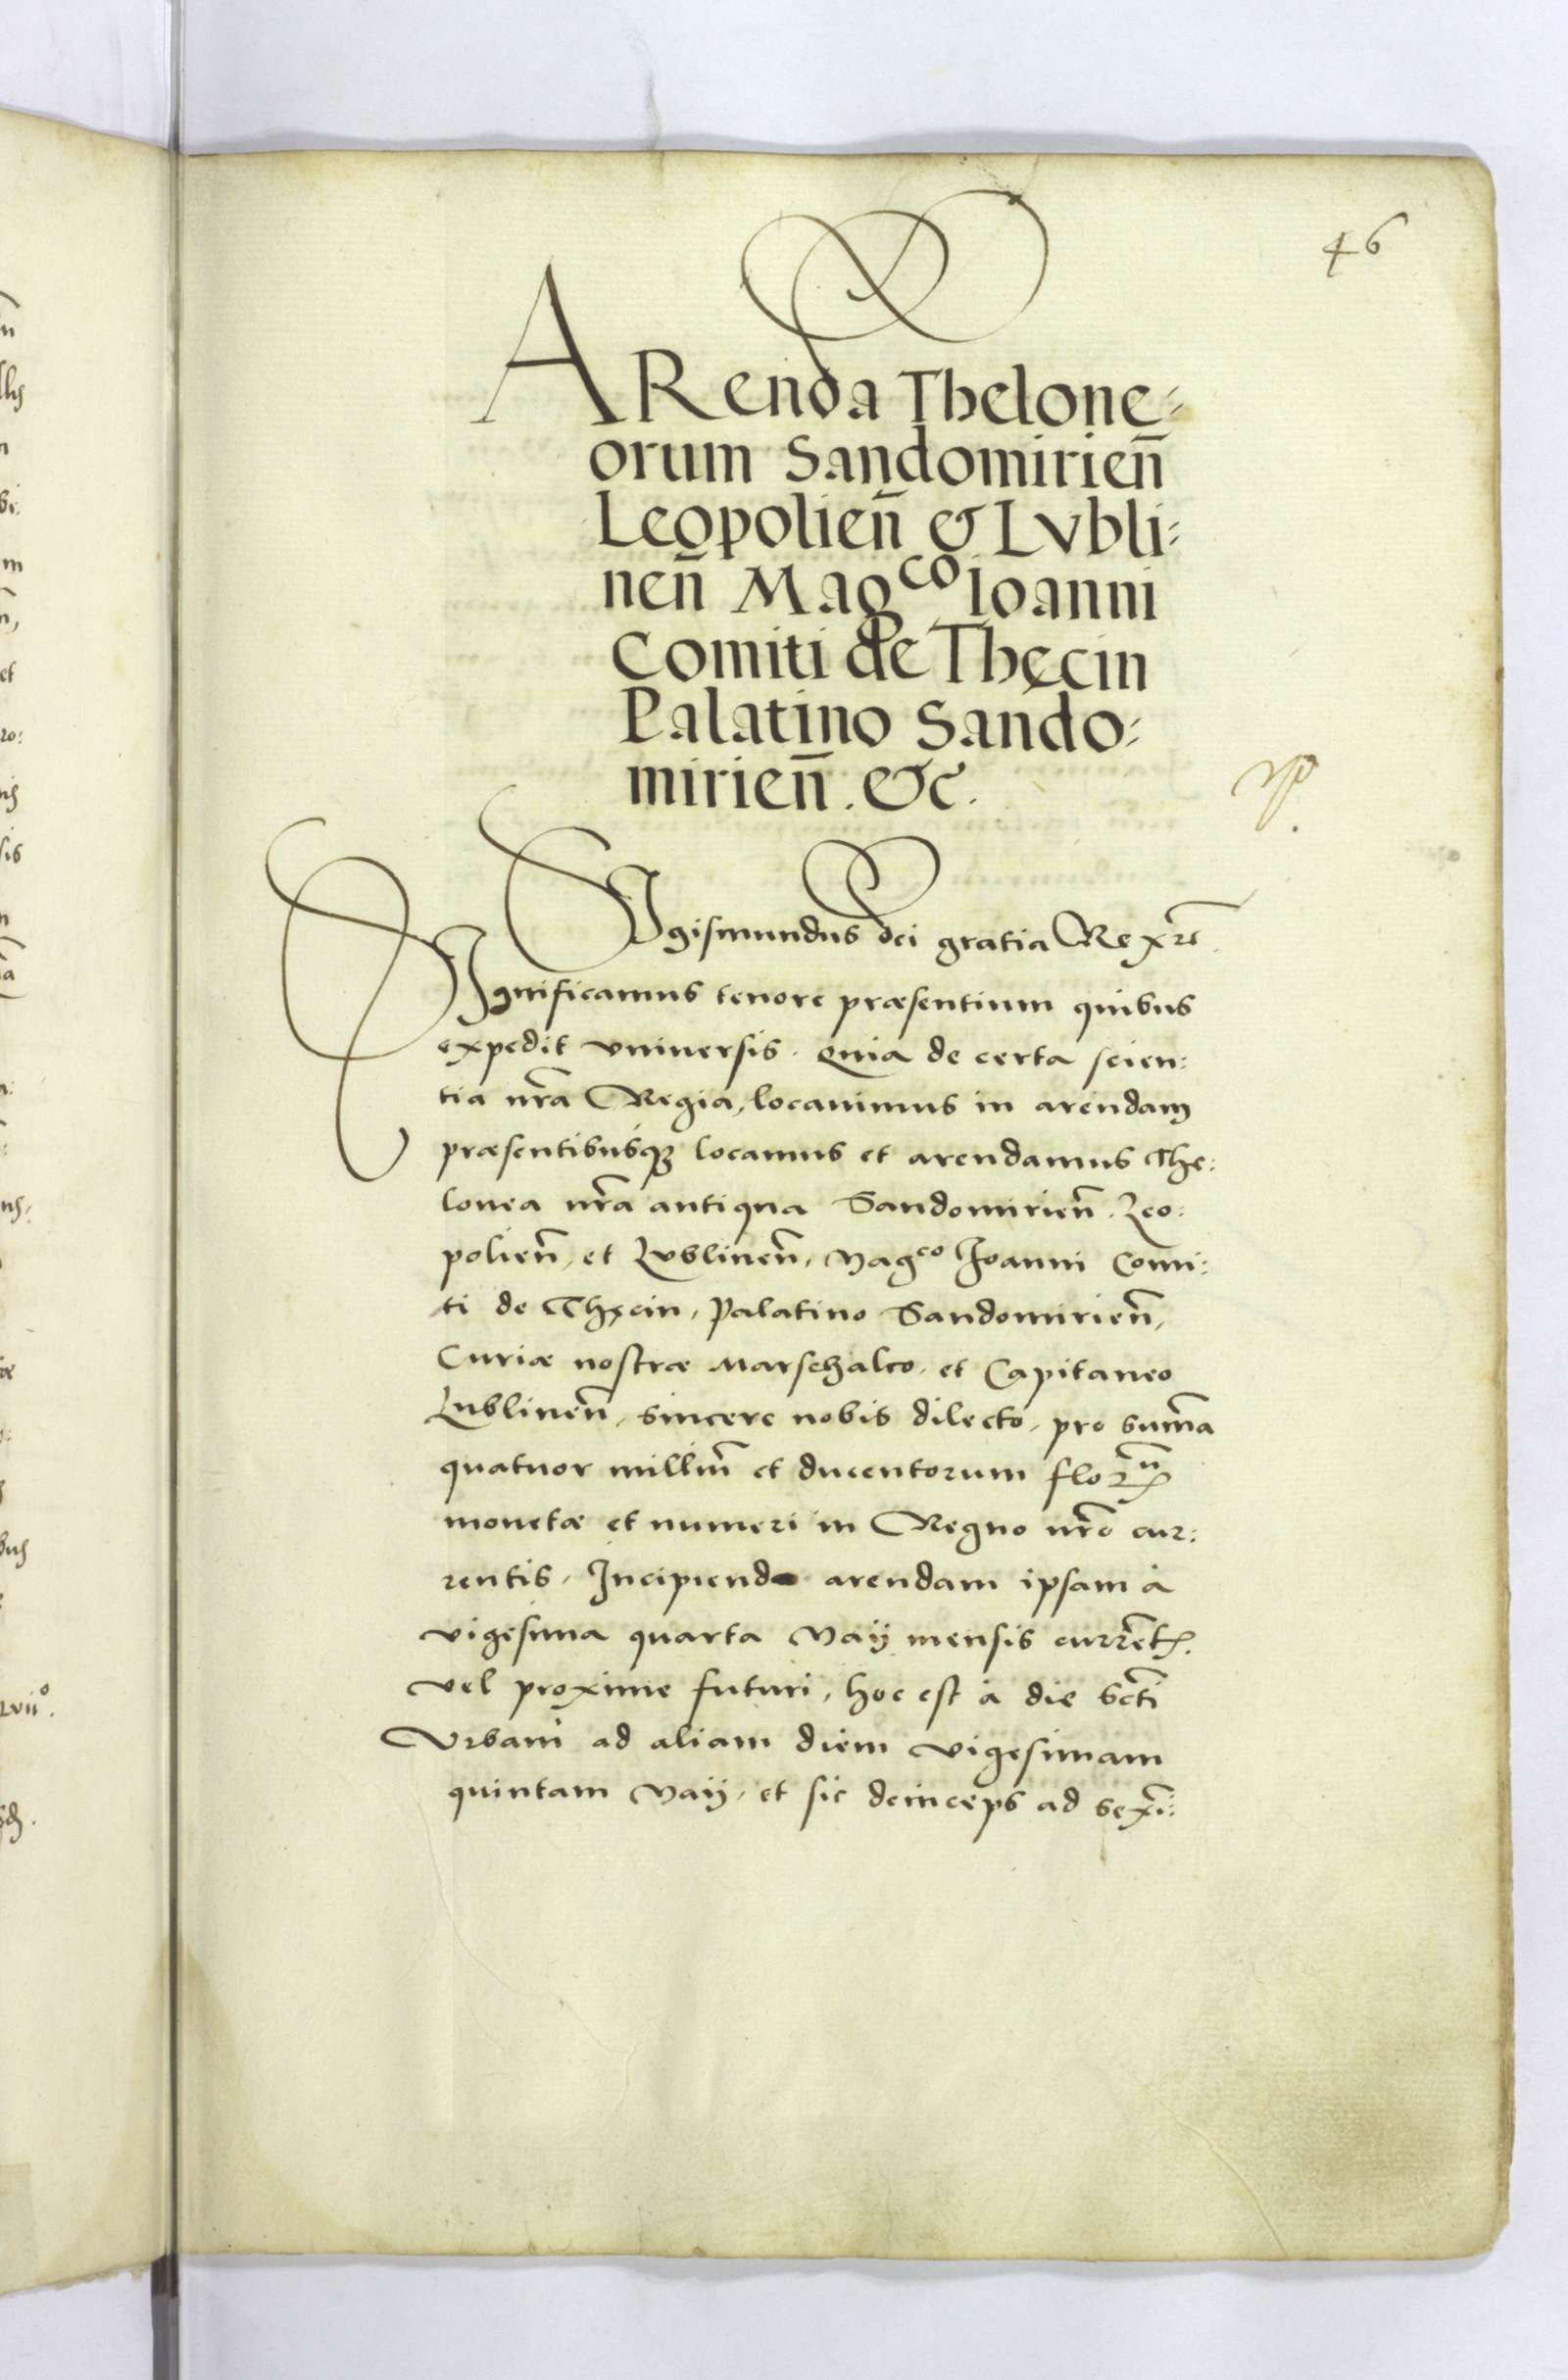 46
ARenda Thelone-
orum Sandomirien̄
Leopolien̄ & Lvbli-
nen̄ Magco Ioanni
Comiti de Thęcin
Palatino Sando-
mirien̄. &c.
Sigismundus dei gratia Rex rc̄
Significamus tenore præsentium quibus
expedit vniuersis. Quia de certa scien:
tia nr̄a Regia, locauimus in arendam
præsentibusqꝫ locamus et arendamus The:
lonea nr̄a antiqua Sandomirien̄. Leo:
polien̄, et Lvblinen̄, Magco Joanni Comi:
ti de Thęcin, Palatino Sandomirien̄,
Curiæ nostræ Marschalco, et Capitaneo
Lublinen̄, sincere nobis dilecto, pro sum̄a
quatuor milliū et ducentorum florꝝ
monetæ et numeri in Regno nr̄o cur:
rentis. Incipiendo arendam ipsam à
vigesima quarta Maij mensis curren̄tꝭ.
vel proxime futuri, hoc est à die Sc̄ti
Vrbani ad aliam diem vigesimam
quintam Maij, et sic deinceps ad sexī: